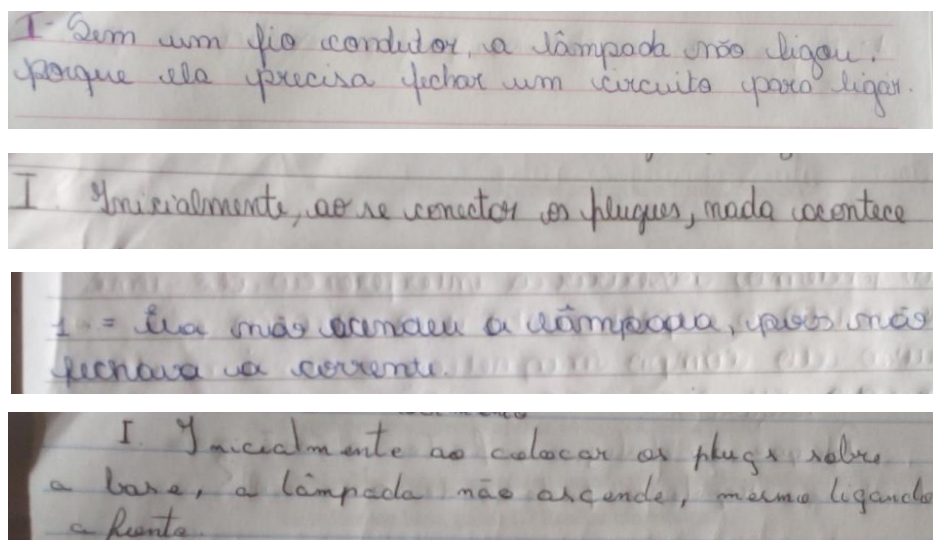 I- Sem um fio condutor, a lâmpada não ligou.
porque ela precisa fechar um circuito para ligar.
I Inicialmente, ao se conectar os plugues, nada acontece
1. = Ela não acendeu a lâmpada, pois não
fechava a corrente.
I. Inicialmente ao colocar os plugs sobre
a base, a lâmpada não ascende, mesmo ligando
a fonte.